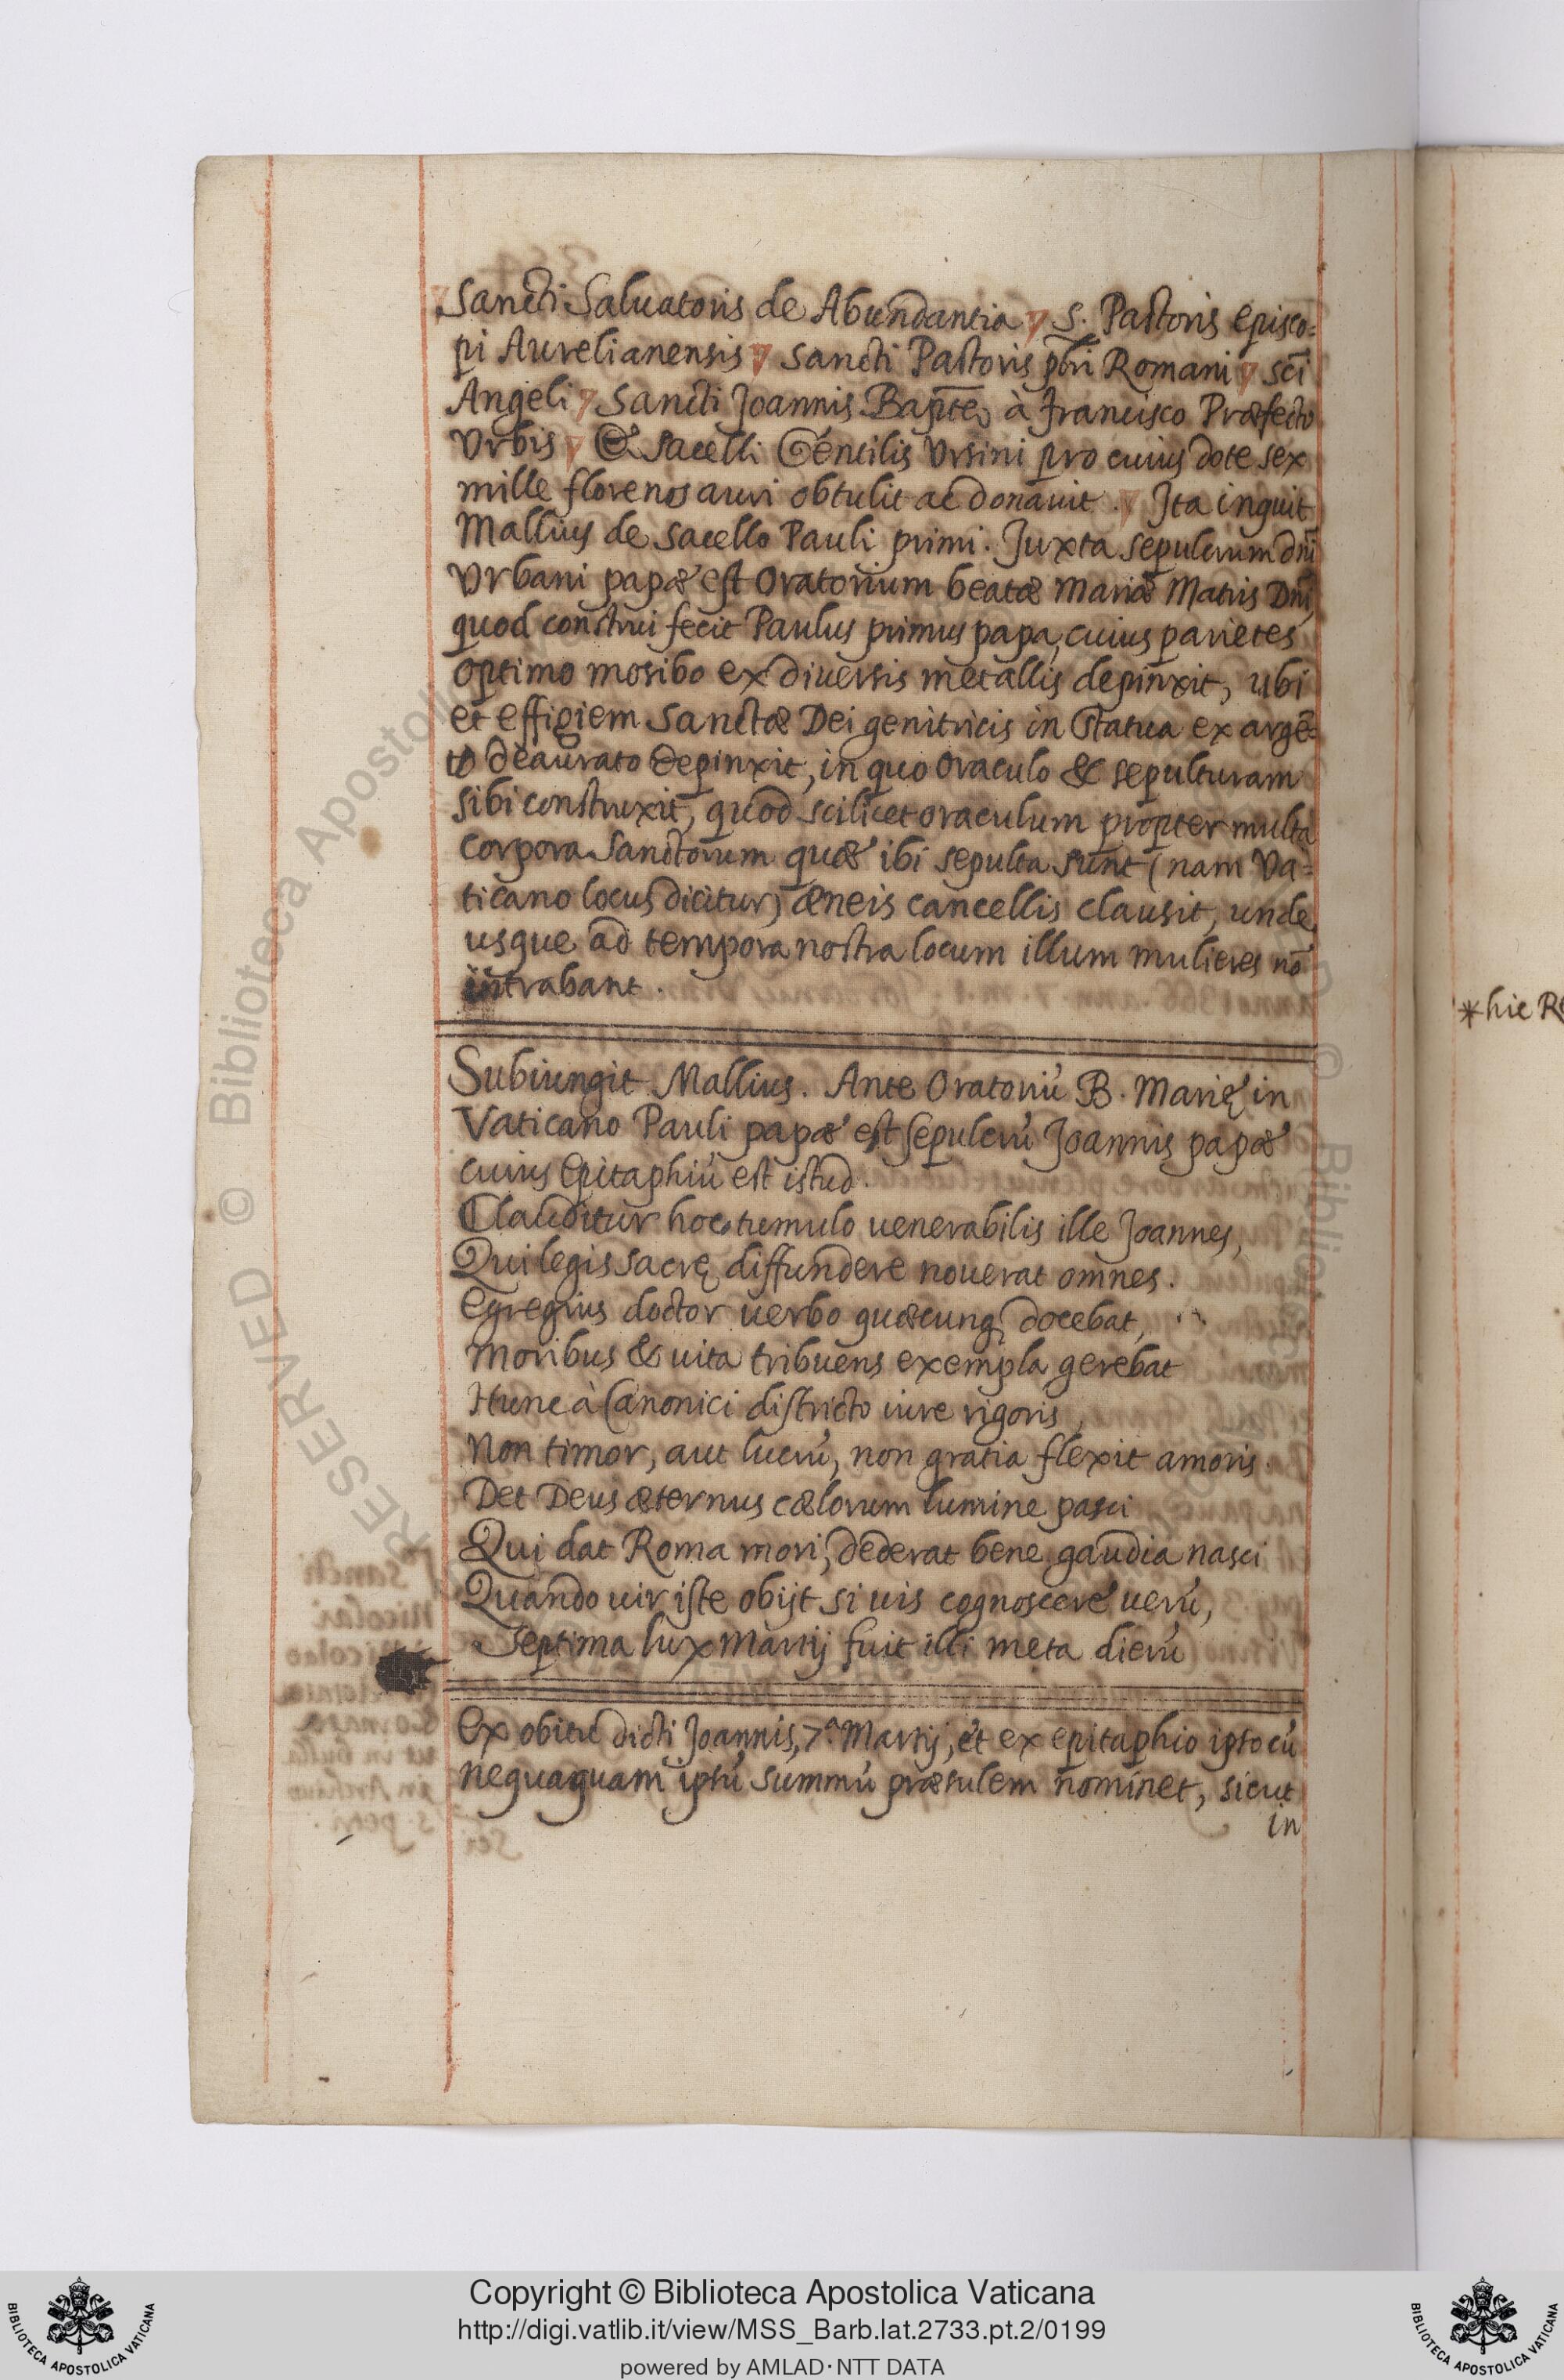 Sancti Saluatoris de Abundantia S. Pastoris episco=
pi Aurelianensis Sancti Pastoris pbri Romani sci
Angeli Sancti Joannis Bapte à Francisco Præfecto
Vrbis & sacelli Gentilis Vrsini pro cuius dote sex
mille florenos auri obtulit ac donauit. Ita inquit
Mallius de sacello Pauli primi. Juxta sepulcrum dni
Vrbani papæ est oratorium beatæ Mariæ Matris Dni,
quod construi fecit Paulus primus papa, cuius parietes
optimo mosibo ex diuersis metallis depinxit, ubi
et effigiem Sanctæ Dei genitricis in statua ex argē=
to deaurato depinxit, in quo oraculo & sepulturam
sibi construxit, quod scilicet oraculum propter multa
corpora Sanctorum quæ ibi sepulta sunt (nam Va=
ticano locus dicitur) æneis cancellis clausit, unde
usque ad tempora nostra locum illum mulieres nō
intrabant.
Subiungit Mallius. Ante Oratoriū B. Marię in
Vaticano Pauli papæ est sepulcrū Joannis papæ
cuius Epitaphiū est istud.
Clauditur hoc tumulo uenerabilis ille Joannes,
Qui legis sacrę diffundere nouerat omnes.
Egregius doctor uerbo quæcunq; docebat,
Moribus & uita tribuens exempla gerebat
Hunc à Canonici districto iure rigoris,
Non timor, aut lucrū, non gratia flexit amoris.
Det Deus æternus cælorum lumine pasci
Qui dat Roma mori, dederat bene gaudia nasci
Quando uir iste obijt si uis cognoscere uerū,
Septima lux Martij fuit illi meta dierū
Ex obitu dicti Joannis, 7.ª Martij, et ex epitaphio ipso cū
nequaquam ipsū summū præsulem nominet, sicut
in
*hic
Copyright © Biblioteca Apostolica Vaticana
http://digi.vatlib.it/view/MSS_Barb.lat.2733.pt.2/0199
powered by AMLAD·NTT DATA
BIBLIOTECA APOSTOLICA VATICANA
BIBLIOTECA APOSTOLICA VATICANA